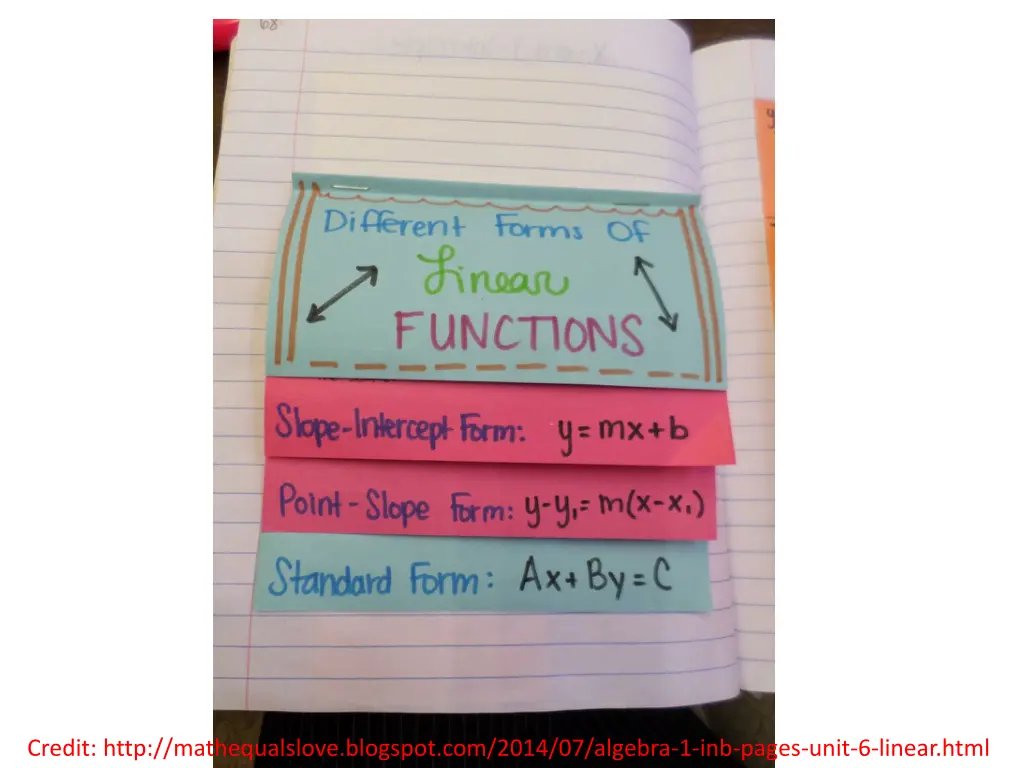 68
Different Forms Of
Linear
FUNCTIONS
Slope-Intercept Form: y = mx + b
Point-Slope Form: y-y₁ = m(x-x₁)
Standard Form: Ax + By = C
Credit: http://mathequalslove.blogspot.com/2014/07/algebra-1-inb-pages-unit-6-linear.html